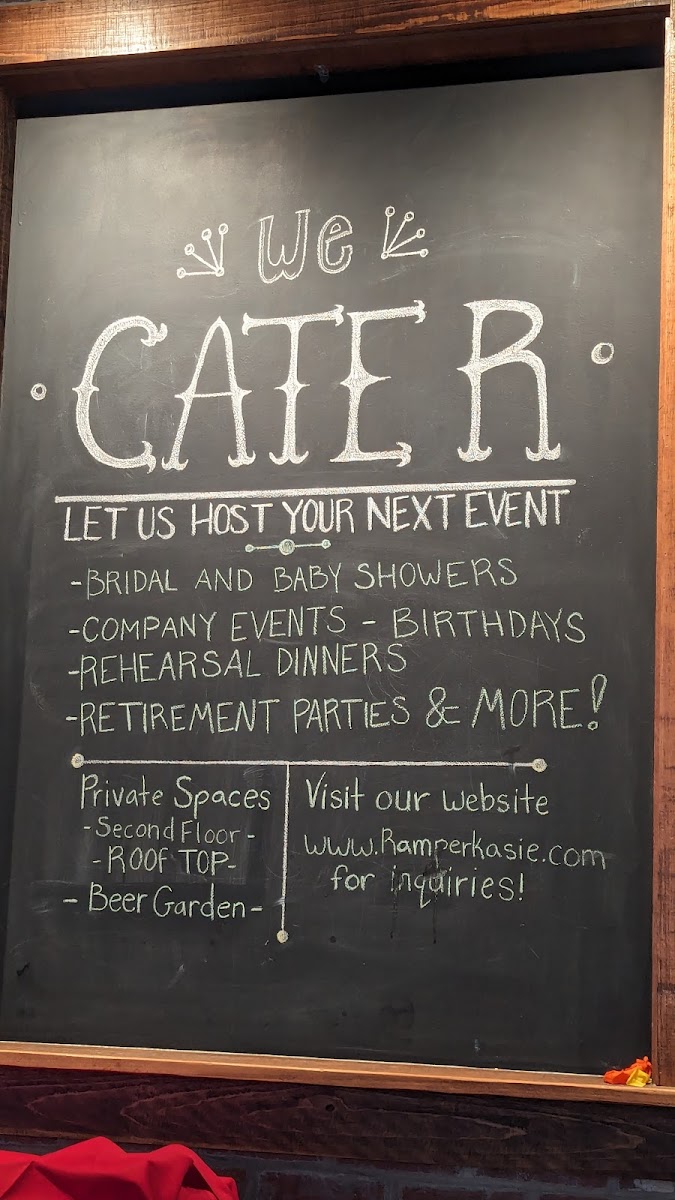 We
CATER
LET US HOST YOUR NEXT EVENT
-BRIDAL AND BABY SHOWERS
-COMPANY EVENTS - BIRTHDAYS
-REHEARSAL DINNERS
-RETIREMENT PARTIES & MORE!
Private Spaces
-Second Floor-
-ROOF TOP-
- Beer Garden-
Visit our website
www.Ramperkasie.com
for inquiries!